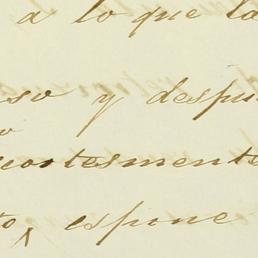 a lo que la
so y despu
o
cortesmente
to, espone